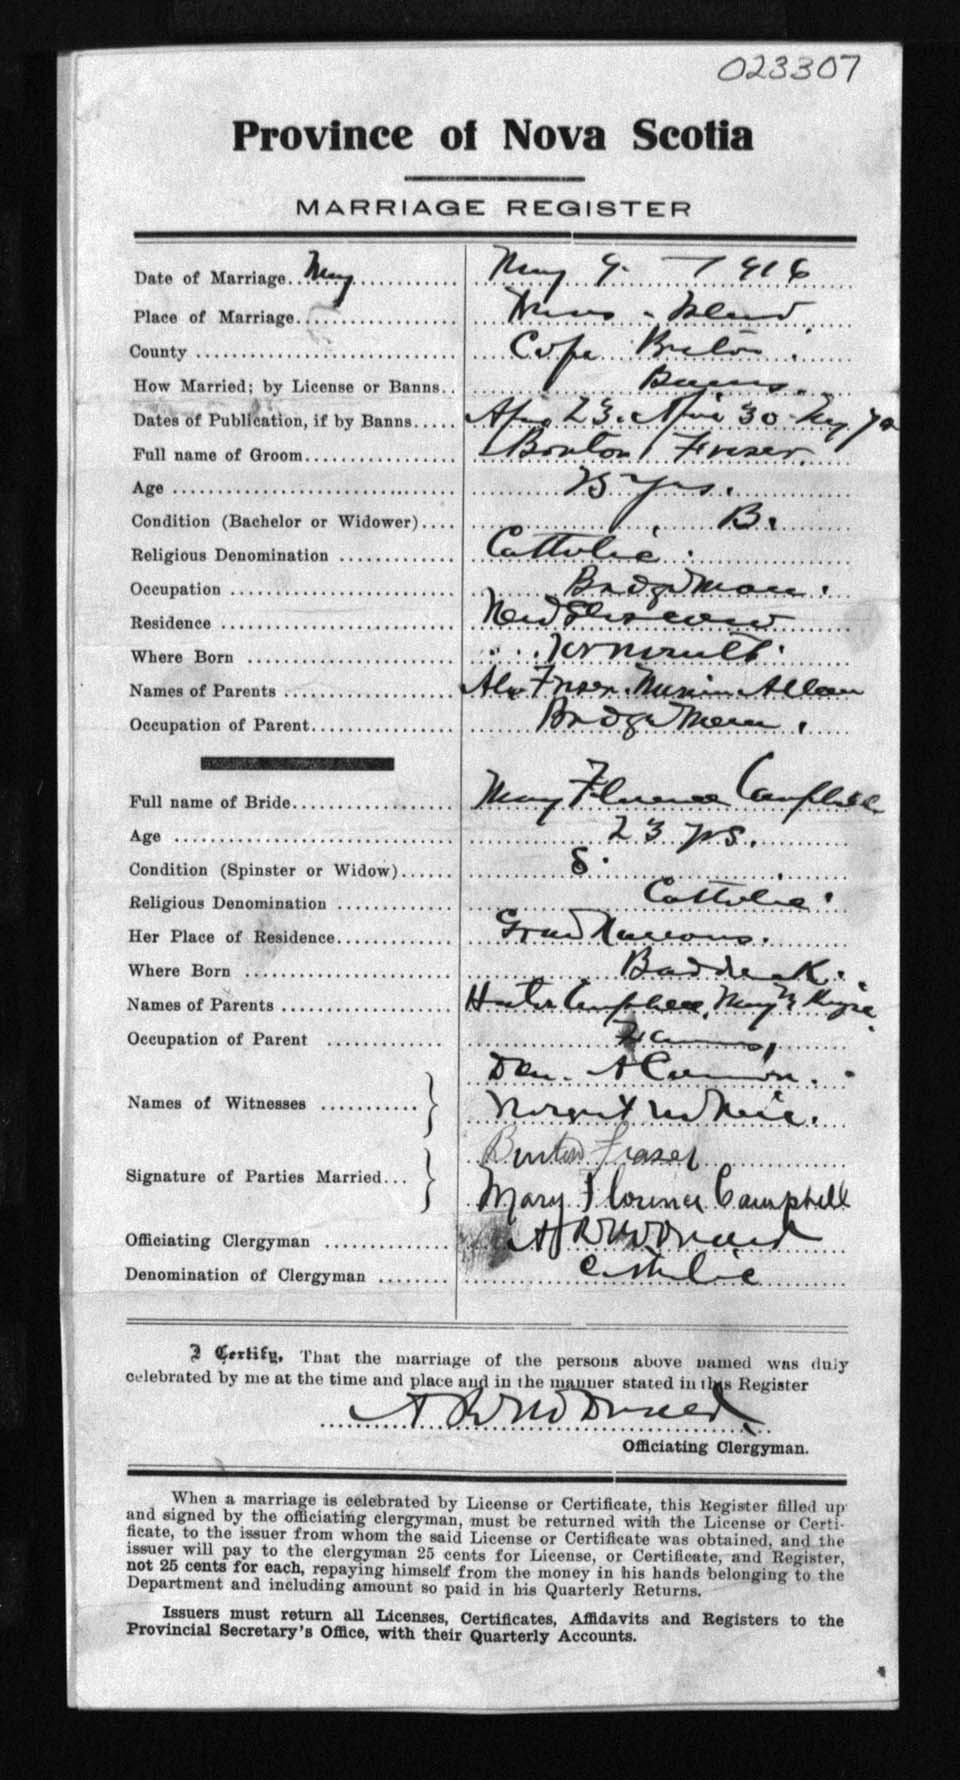 023307
Province of Nova Scotia
MARRIAGE REGISTER
Date of Marriage May May 9. 1916
Place of Marriage Island
County Cape Breton.
How Married; by License or Banns Banns.
Dates of Publication, if by Banns 23. 30
Full name of Groom Fraser
Age 25 yrs.
Condition (Bachelor or Widower) B.
Religious Denomination Catholic.
Occupation Bridgeman.
Residence New Glasgow
Where Born
Names of Parents Alex Fraser Allan
Occupation of Parent Bridgeman.
Full name of Bride Mary Florence Campbell
Age 23 yrs.
Condition (Spinster or Widow) S.
Religious Denomination Catholic.
Her Place of Residence Grand Narrows.
Where Born Baddeck.
Names of Parents Hector Campbell, Mary
Occupation of Parent
Dan. A
Names of Witnesses
Margaret McNeil.
Burton Fraser
Signature of Parties Married
Mary Florence Campbell
Officiating Clergyman A R McDonald
Denomination of Clergyman Catholic
I Certify, That the marriage of the persons above named was duly
celebrated by me at the time and place and in the manner stated in this Register
A R McDonald
Officiating Clergyman.
When a marriage is celebrated by License or Certificate, this Register filled up
and signed by the officiating clergyman, must be returned with the License or Certi-
ficate, to the issuer from whom the said License or Certificate was obtained, and the
issuer will pay to the clergyman 25 cents for License, or Certificate, and Register,
not 25 cents for each, repaying himself from the money in his hands belonging to the
Department and including amount so paid in his Quarterly Returns.
Issuers must return all Licenses, Certificates, Affidavits and Registers to the
Provincial Secretary's Office, with their Quarterly Accounts.